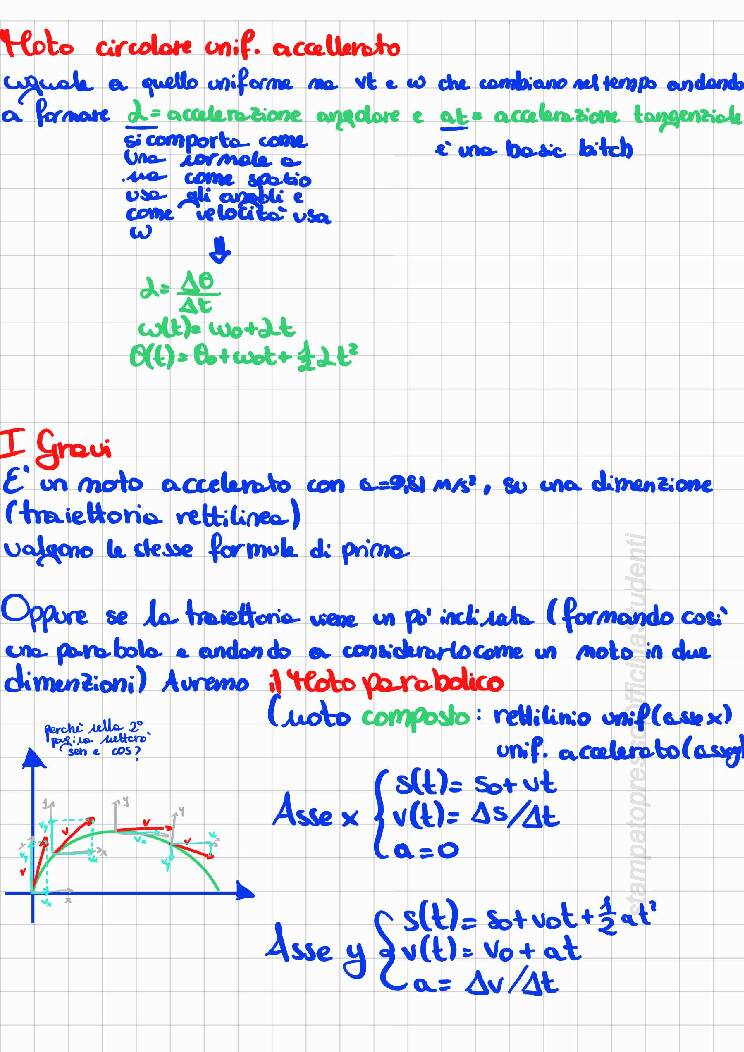 Moto circolare unif. accellerato
uguale a quello uniforme ma vt e ω che cambiano nel tempo andando
a formare α = accelerazione angolare e at = accelerazione tangenziale
si comporta come
una normale a
ma come spazio
usa gli angoli e
come velocità usa
ω
è una basic bitch
α = Δθ/Δt
ω(t) = ω0 + αt
θ(t) = θ0 + ω0t + 1/2 αt²
I Gravi
E' un moto accelerato con a=9,81 m/s², su una dimenzione
(traiettoria rettilinea)
valgono le stesse formule di prima
Oppure se la traiettoria viene un po' inclinata (formando così
una parabola e andando a considerarlo come un moto in due
dimenzioni) Avremo il Moto parabolico
(moto composto: rettilinio unif (asse x)
unif. accelerato (asse y)
perchè nella 2°
pagina metterò
sen e cos?
Asse x { s(t) = s0 + vt
v(t) = Δs/Δt
a = 0
y
x
v
vy
vx
Asse y { s(t) = s0 + v0t + 1/2 at²
v(t) = v0 + at
a = Δv/Δt
stampatopressoofficinastudenti